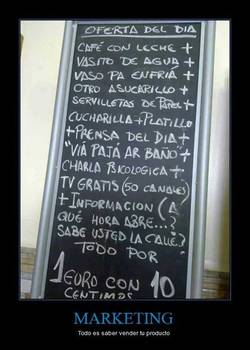 OFERTA DEL DIA
CAFÉ CON LECHE +
VASITO DE AGUA +
VASO PA ENFRIÁ +
OTRO ASUCARILLO +
SERVILLETAS DE PAPEL +
CUCHARILLA + PLATILLO
+ PRENSA DEL DIA +
"VIÁ PAJÁ AR BAÑO" +
CHARLA PSICOLOGICA +
TV GRATIS (50 CANALES)
+ INFORMACION (A
QUÉ HORA ABRE...?
SABE USTED LA CALLE..?
TODO POR
1 EURO CON 10
CENTIMOS
MARKETING
Todo es saber vender tu producto